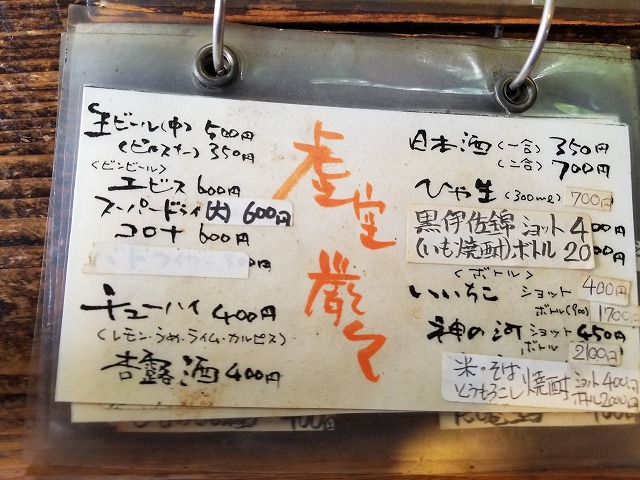 生ビール(中) 500円
350円
<ビンビール>
エビス 600円
スーパードライ(大) 600円
コロナ 600円
チューハイ 400円
(レモン・うめ・ライム・カルピス)
杏露酒 400円
虚空
厳々
日本酒(一合) 350円
(二合) 700円
ひや生(300ml) 700円
黒伊佐錦 ショット 400円
(いも焼酎) ボトル 2000円
<ボトル>
いいちこ ショット 400円
ボトル(900) 1700円
神の河 ショット 450円
ボトル 2100円
米・そば
とうもろこし 焼酎 ショット 400円
ボトル 2000円